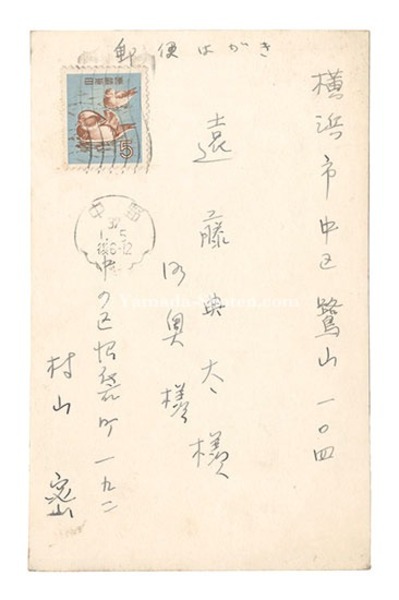 郵便はがき
日本郵便
5
横浜市中区鷺山一〇四
遠藤典太様
奥様
中野
37
1.5
后6-12
中の区
町一九二
村山
Yamada-Shoten.com